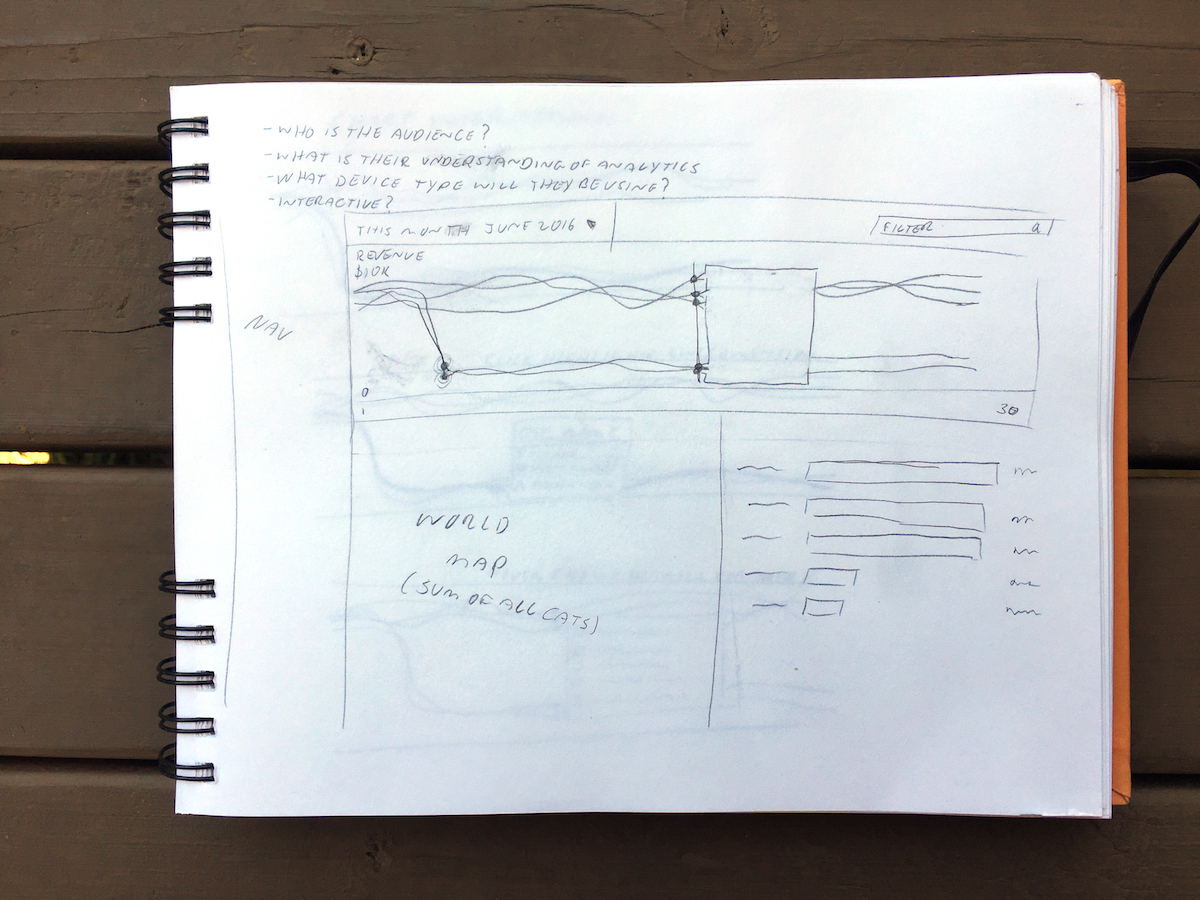 - WHO IS THE AUDIENCE?
- WHAT IS THEIR UNDERSTANDING OF ANALYTICS
- WHAT DEVICE TYPE WILL THEY BE USING?
- INTERACTIVE?
THIS MONTH JUNE 2016
FILTER
REVENUE
$10K
NAV
0
1
30
WORLD
MAP
(SUM OF ALL CATS)